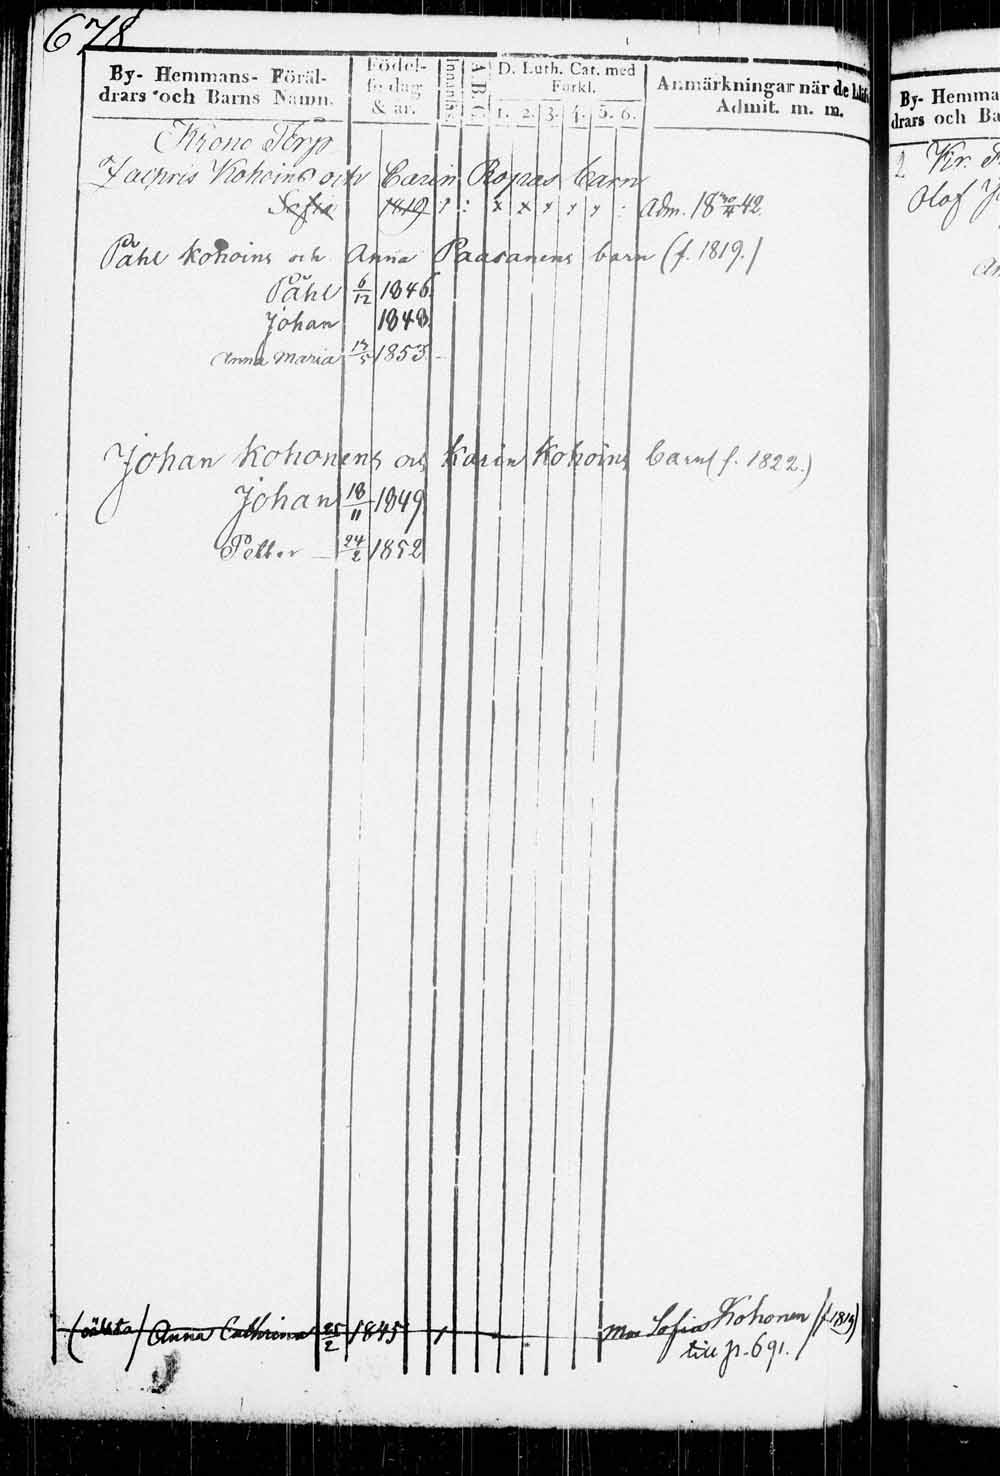 678
By- Hemmans- Föräl-
drars och Barns Namn.
Födel-
sedag
& år.
Innanläs.
A. B. C.
D. Luth. Cat. med
Förkl.
1. 2. 3. 4. 5. 6.
Anmärkningar när de Läs
Admit. m. m.
Krono Torp
Zachris Kohoins och Carin Ropas barn
Sofia 1819 Adm. 18 42.
Påhl Kohoins och Anna Paasanens barn (f. 1819.)
Påhl 6/12 1846.
Johan 1848.
Anna Maria 13/5 1853.
Johan Kohonens och Karin Kohoins barn (f. 1822.)
Johan 18/11 1849
Petter 24/2 1852
(oäkta) Anna Cathrina 25/2 1845 Mor Sofia Kohonen (f. 1819)
till p. 691.
By- Hemma
drars och Ba
2 Kr.
Olof